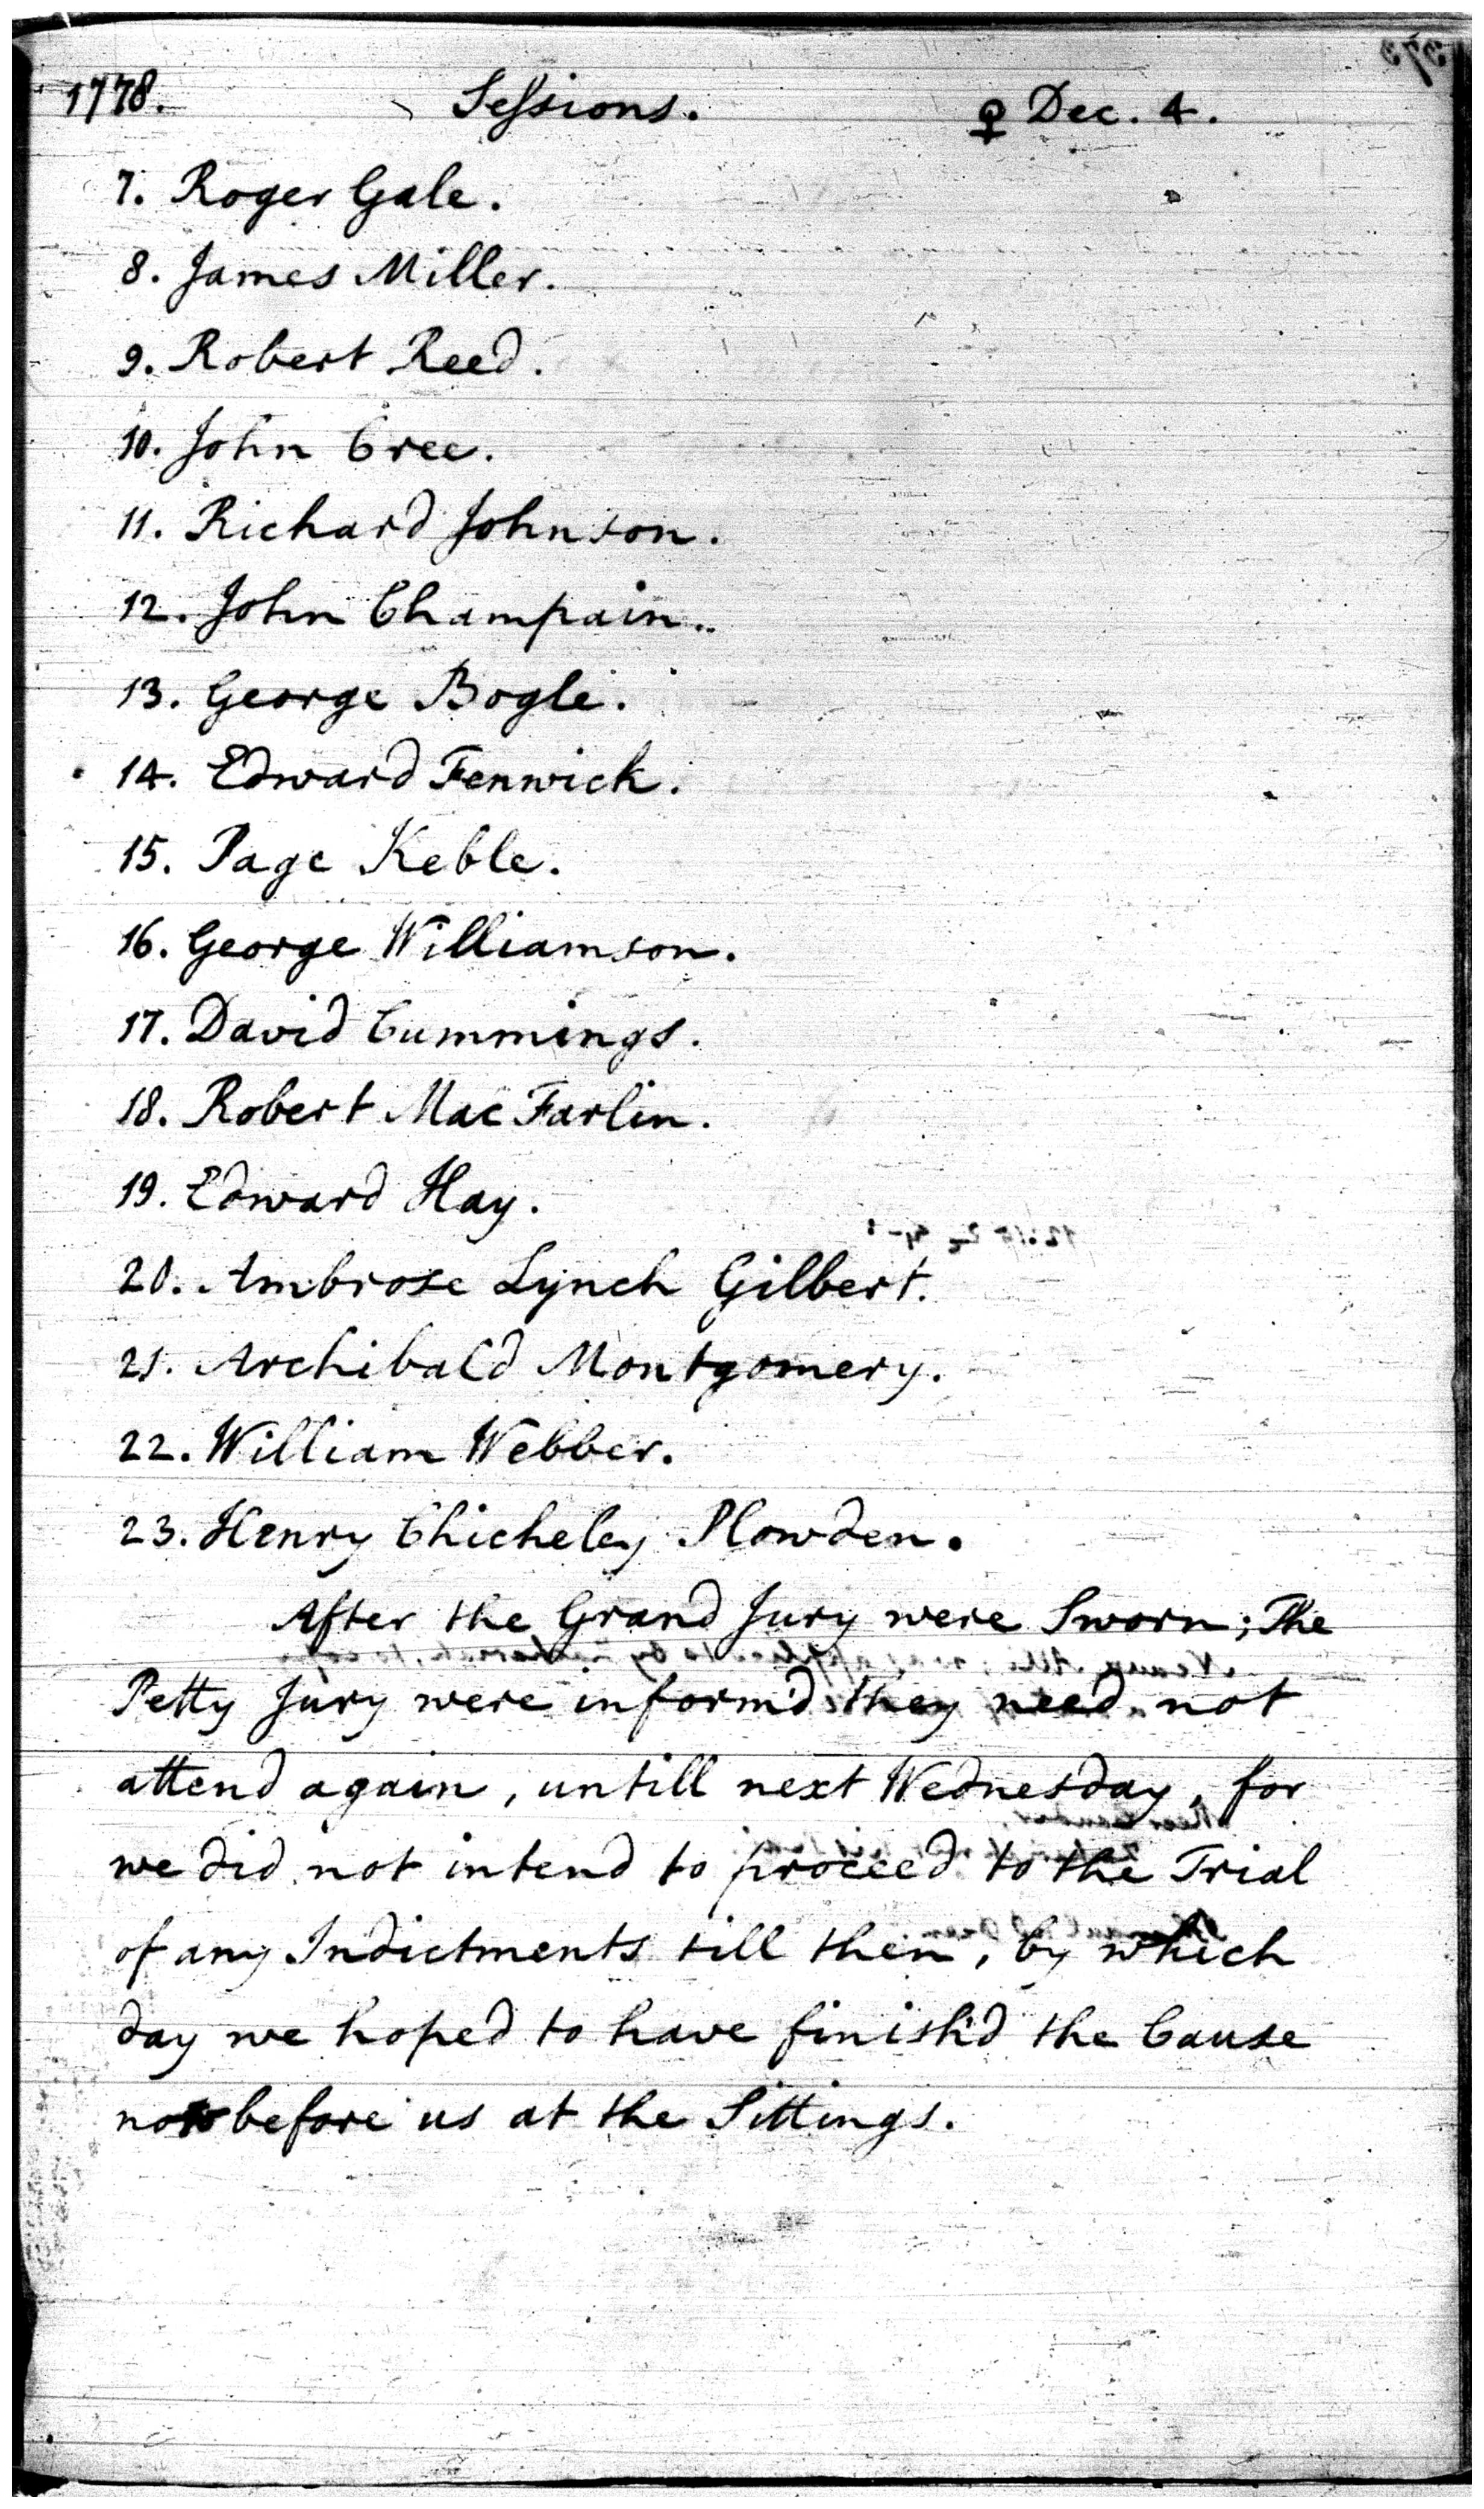 1778. Sessions. ♀ Dec. 4.
7. Roger Gale.
8. James Miller.
9. Robert Reed.
10. John Cree.
11. Richard Johnson.
12. John Champain..
13. George Bogle.
14. Edward Fenwick.
15. Page Keble.
16. George Williamson.
17. David Cummings.
18. Robert Mac Farlin.
19. Edward Hay.
20. Ambrose Lynch Gilbert.
21. Archibald Montgomery.
22. William Webber.
23. Henry Chicheley Plowden.
After the Grand Jury were Sworn; The
Petty Jury were inform'd they need not
attend again, untill next Wednesday, for
we did not intend to proceed to the Trial
of any Indictments till then, by which
day we hoped to have finish'd the Cause
now before us at the Sittings.